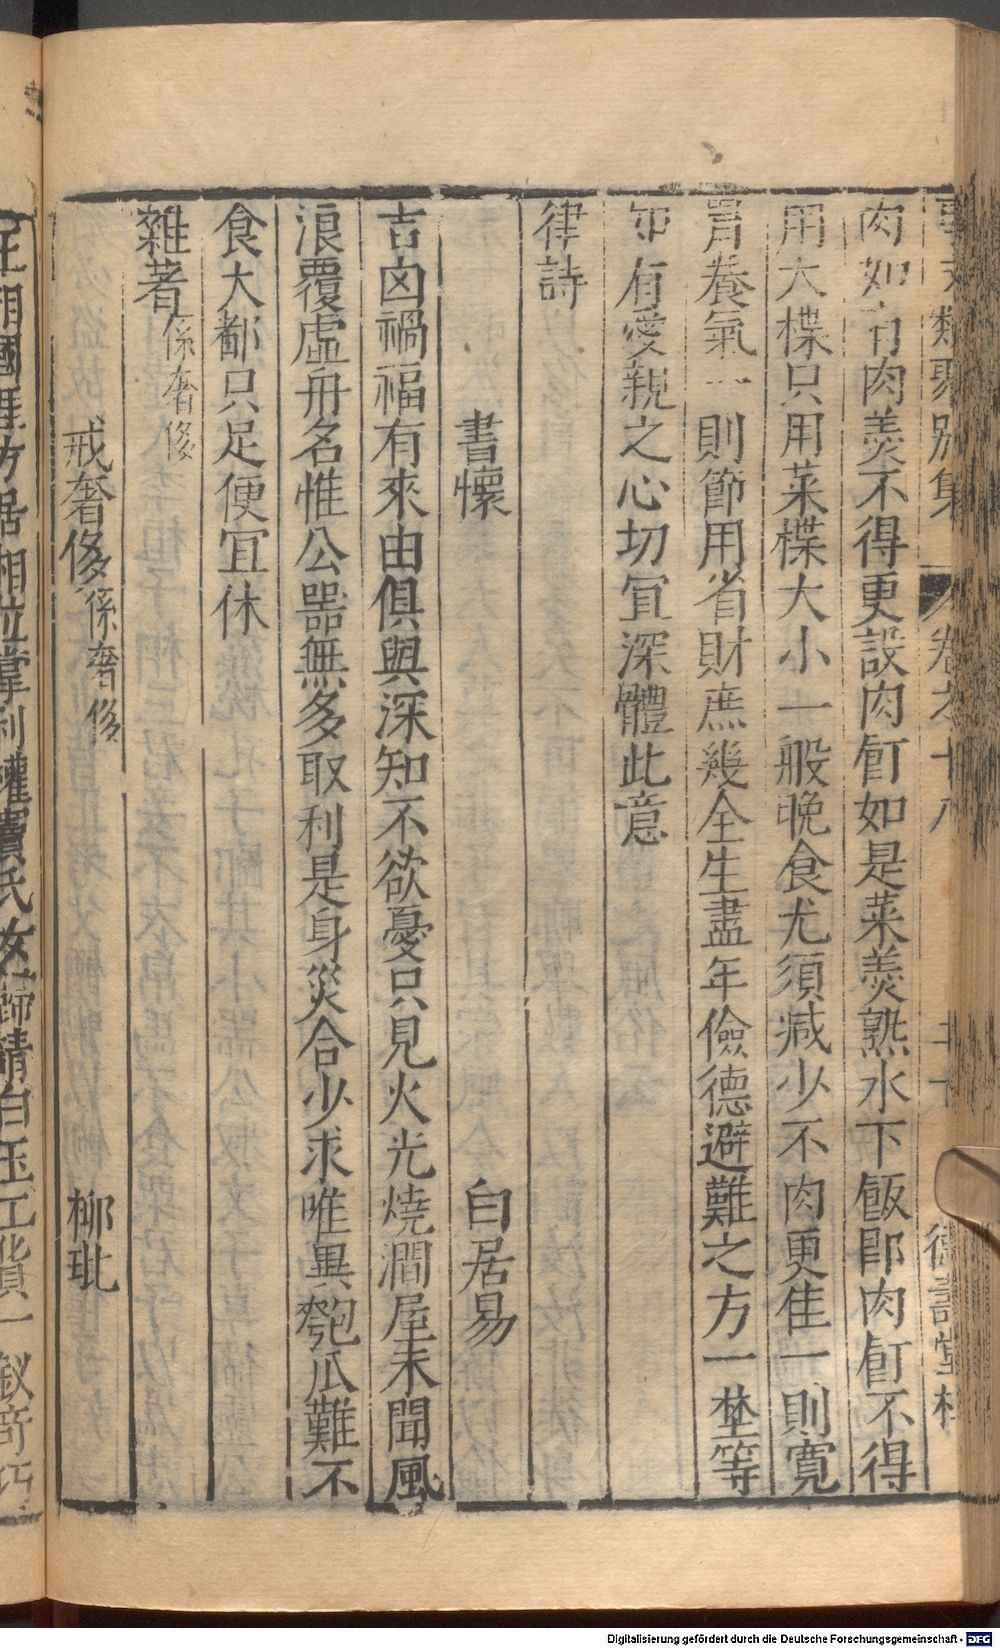 事文類聚別集 卷之十八 二十 德壽堂梓
肉如有肉羮不得更設肉飣如是菜羮熟水下飯郎肉飣不得
用大楪只用菜楪大小一般晚食尤須減少不肉更隹一則寬
胃養氣一則節用省財庶幾全生盡年儉德避難之方一埜等
知有愛親之心切宜深體此意
律詩
書懷 白居易
吉凶禍福有來由俱與深知不欲憂只見火光燒澗屋未聞風
浪覆虛舟名惟公噐無多取利是身災合少求唯異匏瓜難不
食大都只足便宜休
雜著係奢侈
戒奢侈係奢侈 柳玭
王相國涯方居相位掌利權竇氏女歸請白玉工貨一釵奇巧
Digitalisierung gefördert durch die Deutsche Forschungsgemeinschaft - DFG